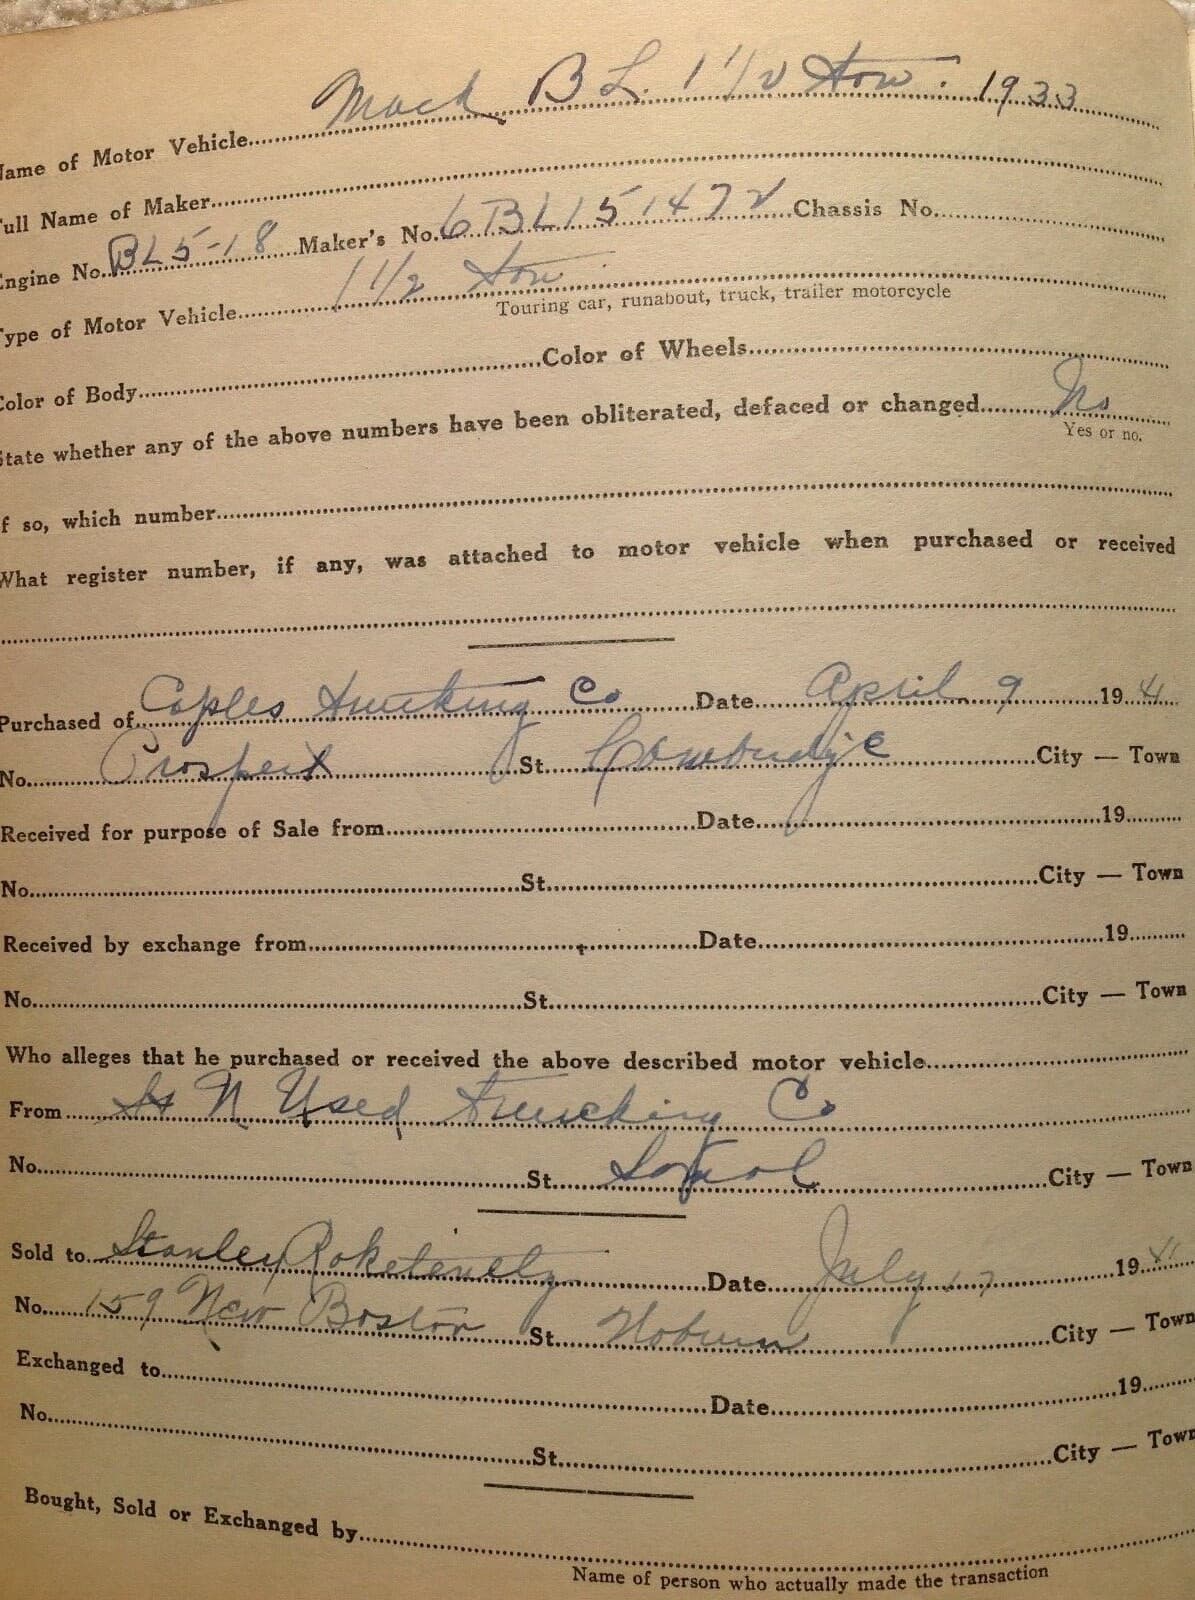 Name of Motor Vehicle Mack BL. 1 1/2 ton. 1933
Full Name of Maker
Engine No. BL5-18 Maker's No. 6BL151472 Chassis No.
Type of Motor Vehicle 1 1/2 ton
Touring car, runabout, truck, trailer motorcycle
Color of Body Color of Wheels
State whether any of the above numbers have been obliterated, defaced or changed No
Yes or no.
If so, which number
What register number, if any, was attached to motor vehicle when purchased or received
Purchased of Caples Trucking Co Date April 9 1941
No. Prospect St. Cambridge City — Town
Received for purpose of Sale from Date 19
No. St. City — Town
Received by exchange from Date 19
No. St. City — Town
Who alleges that he purchased or received the above described motor vehicle
From N Used Trucking Co
No. St. City — Town
Sold to Stanley Date July 17 1941
No. 159 New Boston St. Woburn City — Town
Exchanged to Date 19
No. St. City — Town
Bought, Sold or Exchanged by
Name of person who actually made the transaction